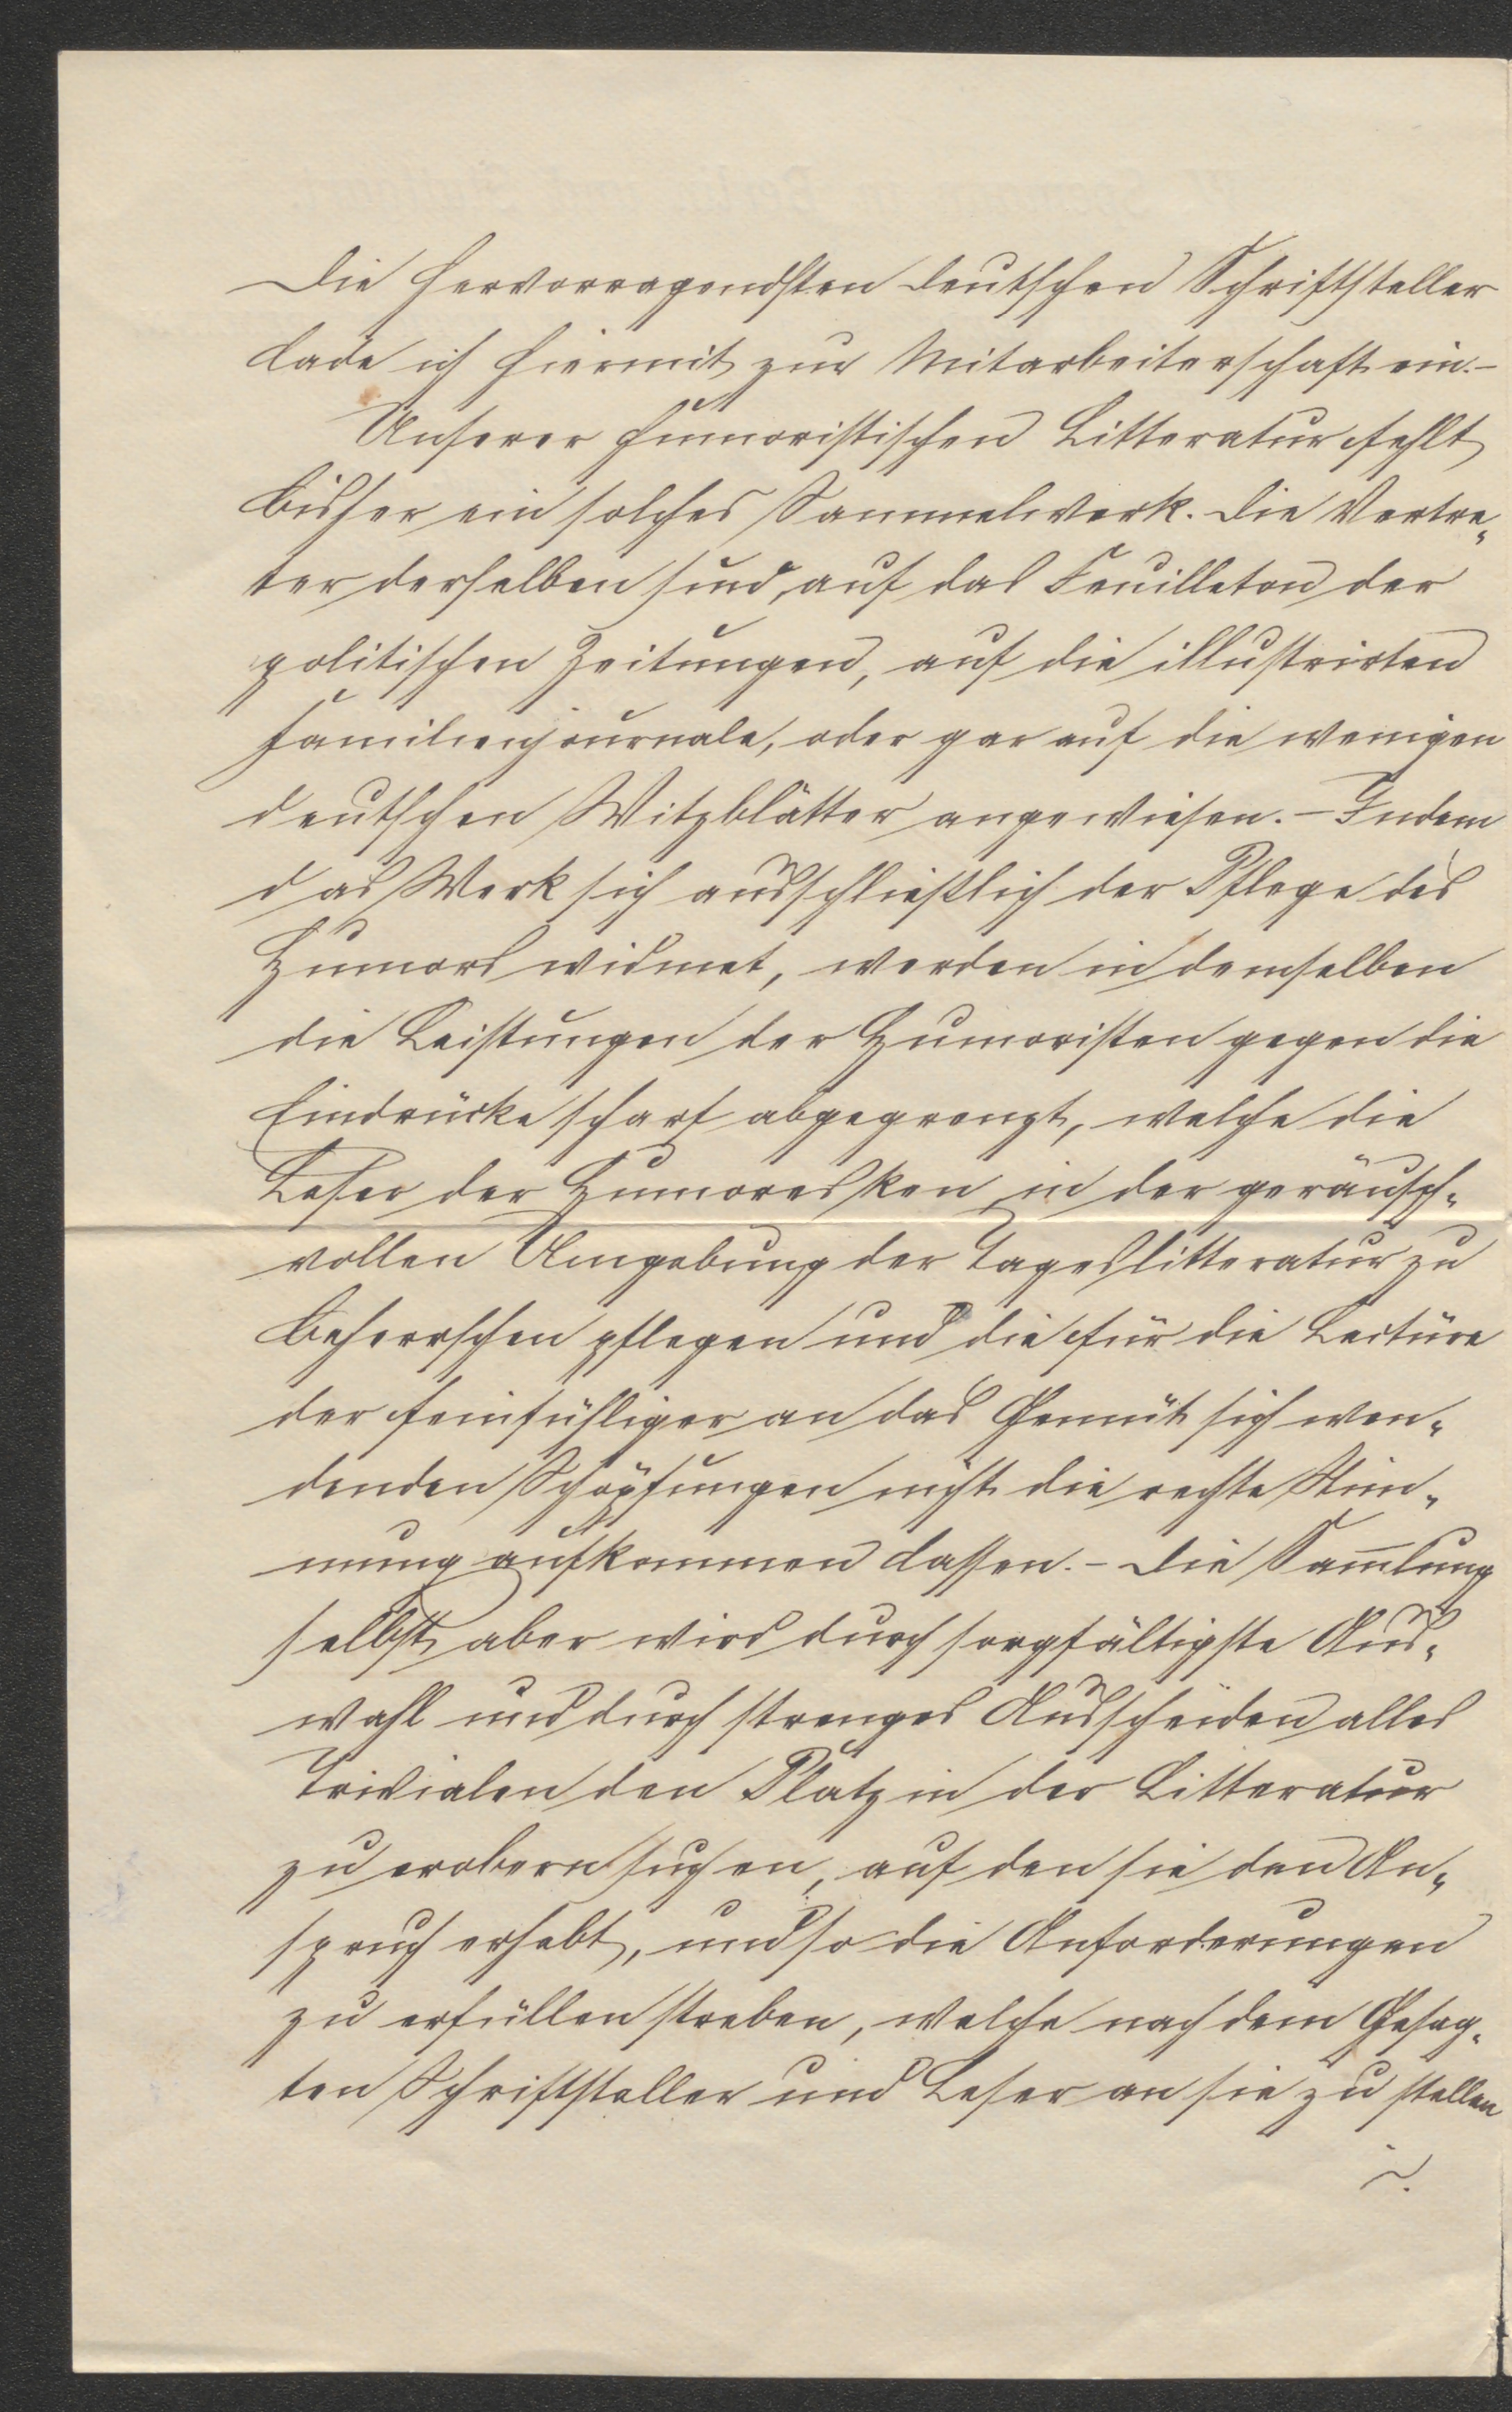 Die hervorragendsten deutschen Schriftsteller
lade ich hiermit zur Mitarbeiterschaft ein. –
Unserer humoristischen Litteratur fehlt
bisher ein solches Sammelwerk. Die Vertre„
ter derselben sind, auf das Feuilleton der
politischen Zeitungen, auf die illustrirten
Familienjournale, oder gar auf die wenigen
deutschen Witzblätter angewiesen. – Indem
das Werk sich ausschließlich der Pflege des
Humors widmet, werden in demselben
die Leistungen der Humoristen gegen die
Eindrücke scharf abgegrenzt, welche die
Leser der Humoresken in der geräusch„
vollen Umgebung der Tageslitteratur zu
beherrschen pflegen und die für die Lectüre
der feinfühliger an das Gemüt sich wen„
denden Schöpfungen nicht die rechte Stim„
mung aufkommen lassen. – Die Sam̅lung
selbst aber wird durch sorgfältigste Aus„
wahl und durch strenges Ausscheiden alles
Trivialen den Platz in der Litteratur
zu erobern suchen, auf den sie den An„
spruch erhebt, und so die Anforderungen
zu erfüllen streben, welche nach dem Gesag„
ten Schriftsteller und Leser an sie zu stellen